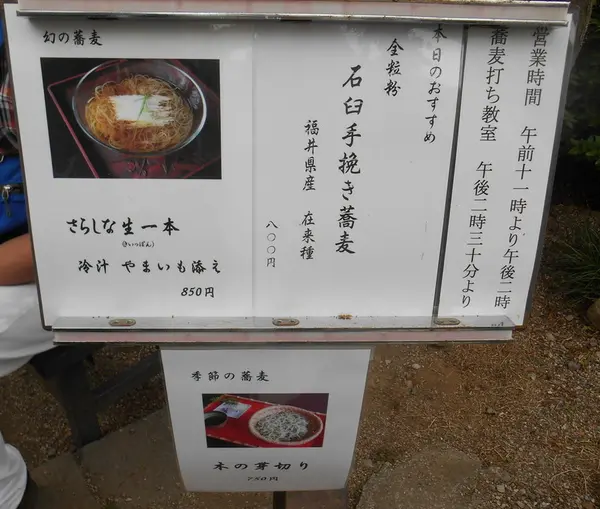 営業時間 午前十一時より午後二時
蕎麦打ち教室 午後二時三十分より
本日のおすすめ
全粒粉
石臼手挽き蕎麦
福井県産 在来種
八〇〇円
幻の蕎麦
さらしな生一本
(きいっぽん)
冷汁 やまいも添え
850円
季節の蕎麦
木の芽切り
750円